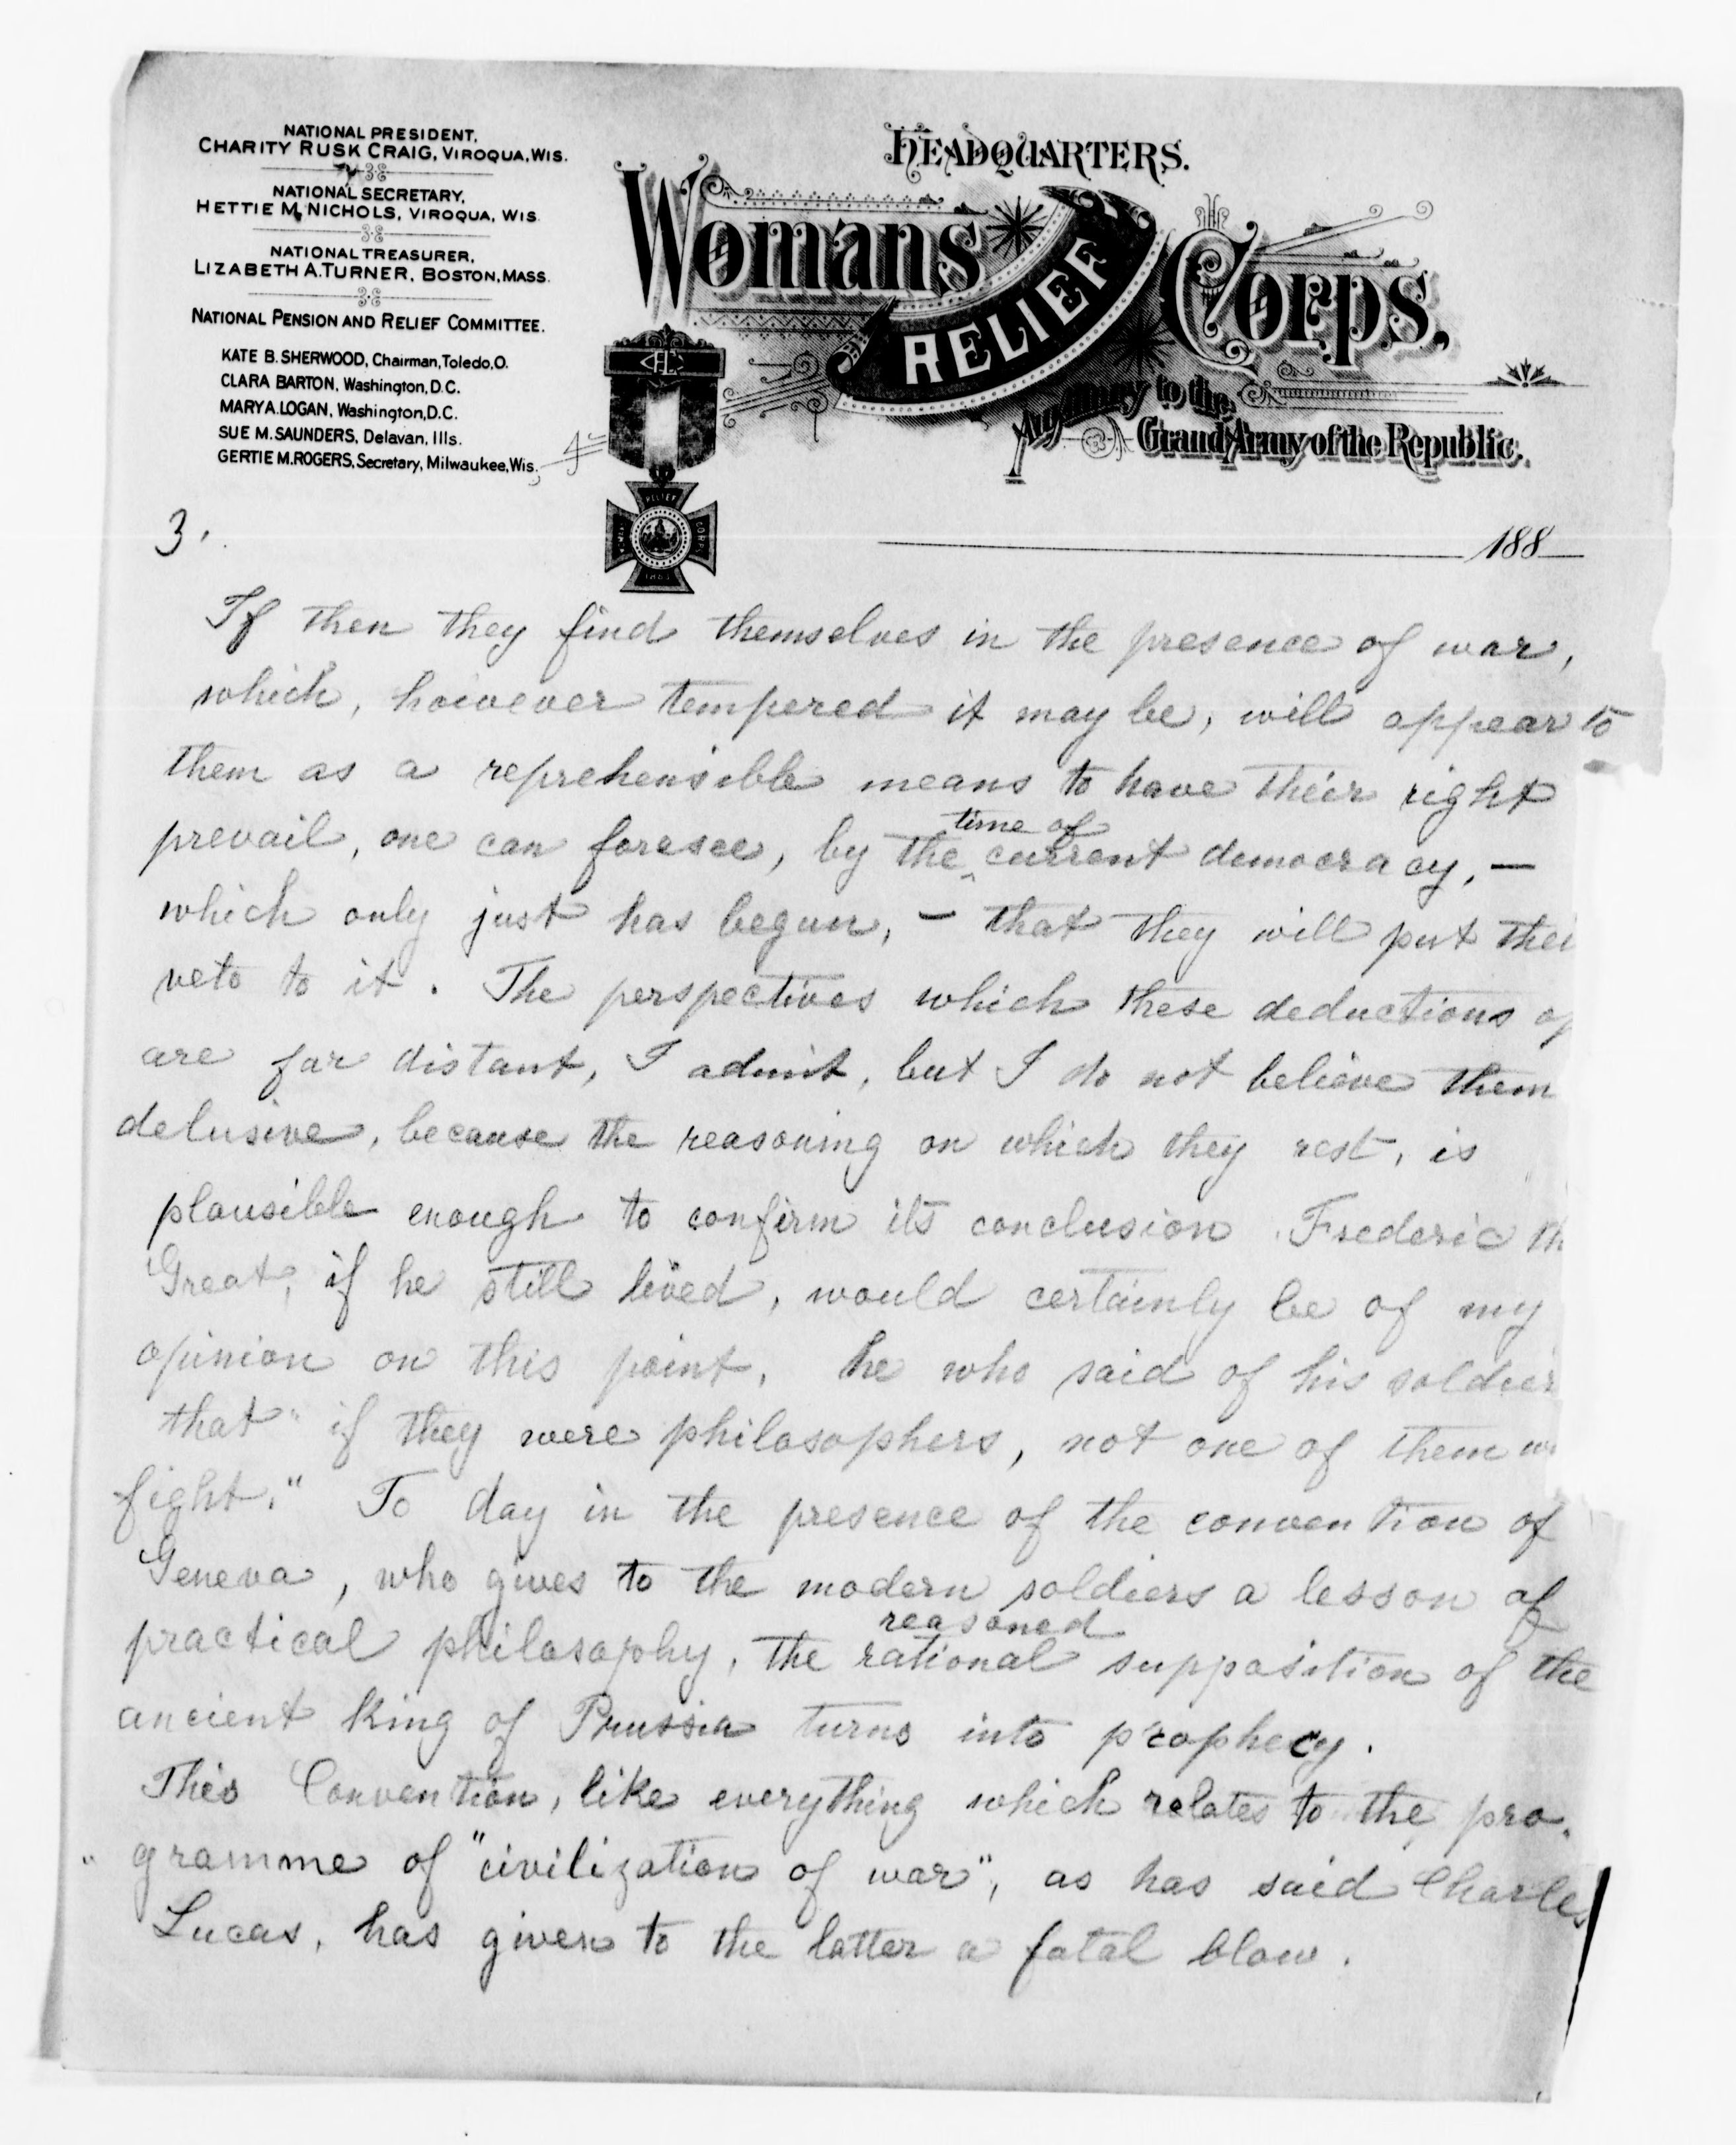 NATIONAL PRESIDENT,
CHARITY RUSK CRAIG, VIROQUA, WIS.
NATIONAL SECRETARY,
HETTIE M. NICHOLS, VIROQUA, WIS.
NATIONAL TREASURER,
LIZABETH A. TURNER, BOSTON, MASS.
NATIONAL PENSION AND RELIEF COMMITTEE.
KATE B. SHERWOOD, Chairman, Toledo, O.
CLARA BARTON, Washington, D.C.
MARY A. LOGAN, Washington, D.C.
SUE M. SAUNDERS, Delavan, Ills.
GERTIE M. ROGERS, Secretary, Milwaukee, Wis.
HEADQUARTERS.
Womans RELIEF Corps,
Auxiliary to the
Grand Army of the Republic.
RELIEF
CORPS
1883
188
3.
If then they find themselves in the presence of war,
which, however tempered it may be, will appear to
them as a reprehensible means to have their right
time of
prevail, one can foresee, by the ‸ current democracy, —
which only just has begun, — that they will put thei
veto to it. The perspectives which these deductions op
are far distant, I admit, but I do not believe them
delusive, because the reasoning on which they rest, is
plausible enough to confirm its conclusion. Frederic th
Great, if he still lived, would certainly be of my
opinion on this point, he who said of his soldier
that "if they were philosophers, not one of them w
fight." To day in the presence of the convention of
Geneva, who gives to the modern soldiers a lesson of
reasoned
practical philosophy, the rational supposition of the
ancient King of Prussia turns into prophecy.
This Convention, like everything which relates to the pro-
" gramme of "civilization of war", as has said Charles
Lucas, has given to the latter a fatal blow.